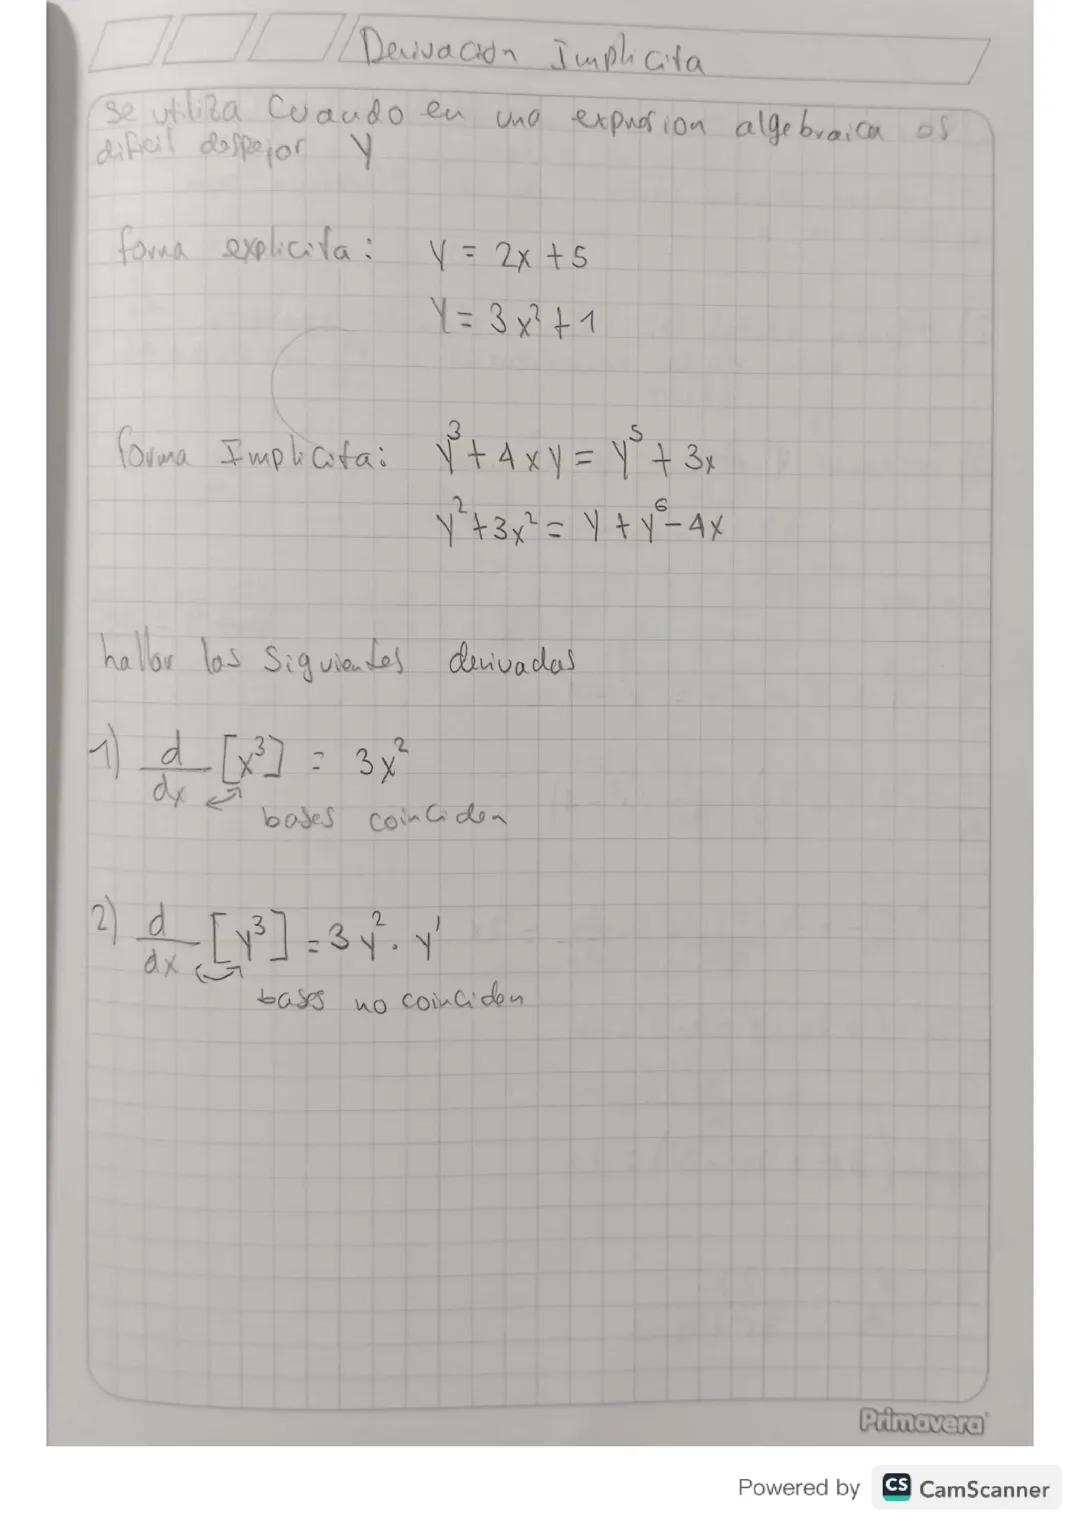 Derivación Implicita
se utiliza Cuando en una expresion algebraica es
dificil despejar Y
forma explicita: Y = 2x + 5
Y = 3x² + 1
forma Implicita: y³ + 4xy = y⁵ + 3x
y² + 3x² = y + y⁶ - 4x
hallar las Siguientes derivadas
1) d/dx [x³] = 3x²
bases coinciden
2) d/dx [y³] = 3y² · y'
bases no coinciden
Primavera
Powered by CS CamScanner